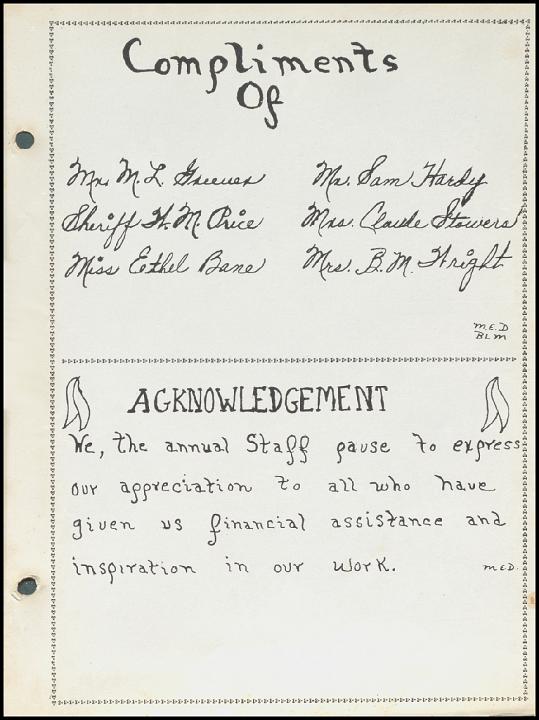 Compliments
Of
Mrs. M. L. Greever Mr. Sam Hardy
Sheriff W. M. Price Mrs. Claude Stowers
Miss Ethel Bane Mrs. B. M. Wright
M.E.D
BLM
ACKNOWLEDGEMENT
We, the annual Staff pause to express
our appreciation to all who have
given us financial assistance and
inspiration in our work.
M.E.D.